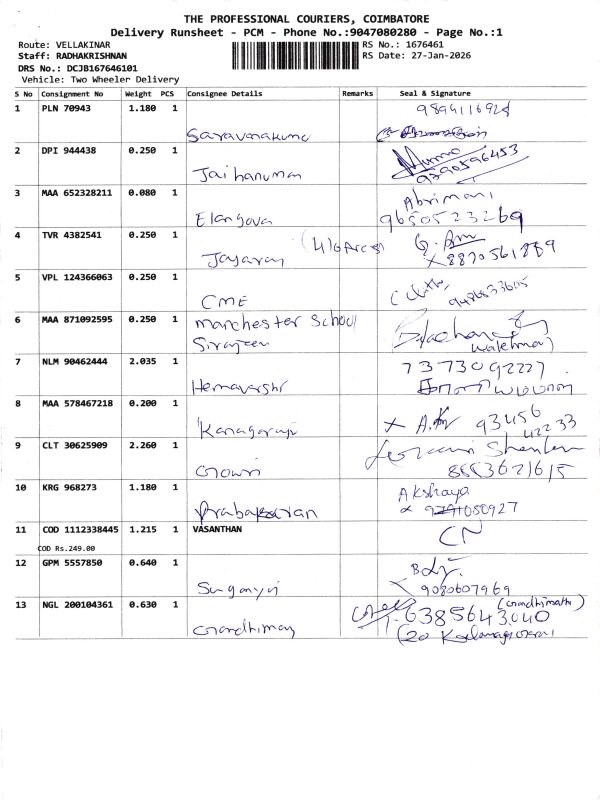 THE PROFESSIONAL COURIERS, COIMBATORE
Delivery Runsheet - PCM - Phone No.:9047080280 - Page No.:1
Route: VELLAKINAR RS No.: 1676461
Staff: RADHAKRISHNAN RS Date: 27-Jan-2026
DRS No.: DCJB167646101
Vehicle: Two Wheeler Delivery
S No Consignment No Weight PCS Consignee Details Remarks Seal & Signature
1 PLN 70943 1.180 1 9894116928
Saravanakumar
2 DPI 944438 0.250 1
Jai hanuman 9590596453
3 MAA 652328211 0.080 1 Abrimani
Elangova 9650523269
4 TVR 4382541 0.250 1
Jayaraj 8870561889
5 VPL 124366063 0.250 1
CME 9486833605
6 MAA 871092595 0.250 1 manchester School
Sirajeen watchman
7 NLM 90462444 2.035 1 7373092227
Hemavarshi
8 MAA 578467218 0.200 1 93456
Kanagaraj 42233
9 CLT 30625909 2.260 1
Gowri 8883621615
10 KRG 968273 1.180 1 Akshaya
Prabakaran 9791080927
11 COD 1112338445 1.215 1 VASANTHAN CN
COD Rs.249.00
12 GPM 5557850 0.640 1
Suganya 9080607969
13 NGL 200104361 0.630 1 (Gandhimathi)
6385643040
Gandhimay